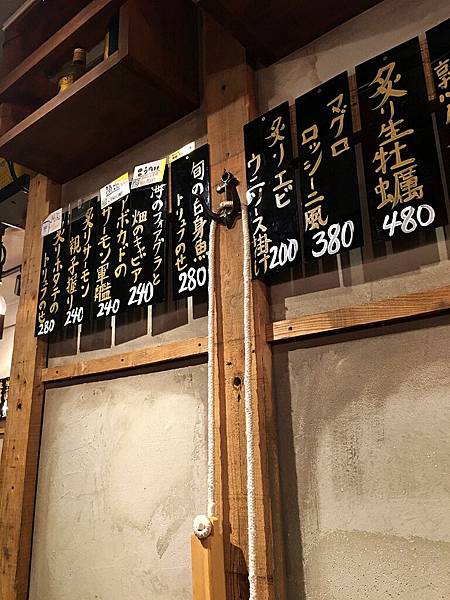 炙り生牡蠣
480
マグロ
ロッシーニ風
380
炙りエビ
ウニソース掛け
200
旬の白身魚
トリュフのせ
280
海のフォアグラと
畑のキャビア
240
アボカドの
サーモン軍艦
240
炙りサーモン
親子握り
240
炙りホタテの
トリュフのせ
280